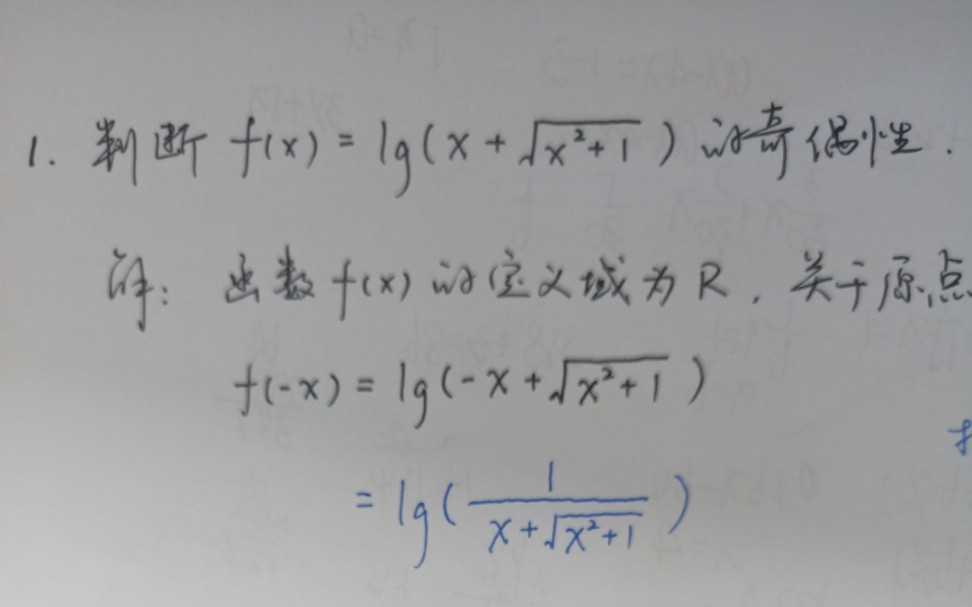 1. 判断 f(x) = lg(x + √(x²+1)) 的奇偶性.
解: 函数 f(x) 的定义域为 R, 关于原点
f(-x) = lg(-x + √(x²+1))
= lg(1/(x+√(x²+1)))